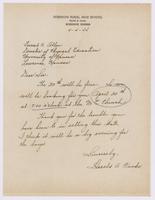 RURAL HIGH SCHOOL
Forrest C. Allen
Director of Physical Education
University of Kansas
Lawrence, Kansas
Dear Sir:
The 30th will be fine. So we
will be looking for you April 30th
at 7:00 o'clock at the M.E. Church.
Thank you for the trouble you
have been to in setting
I think it will be a big evening for
the boys.
Sincerely,
Harold A.